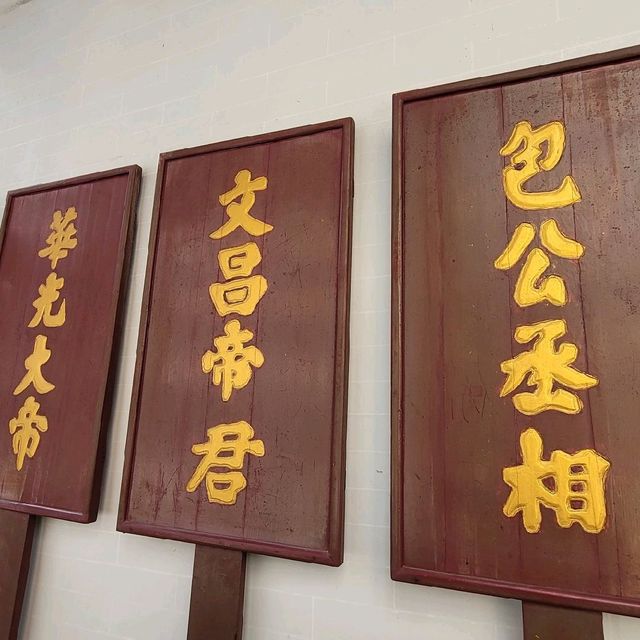 華光大帝
文昌帝君
包公丞相